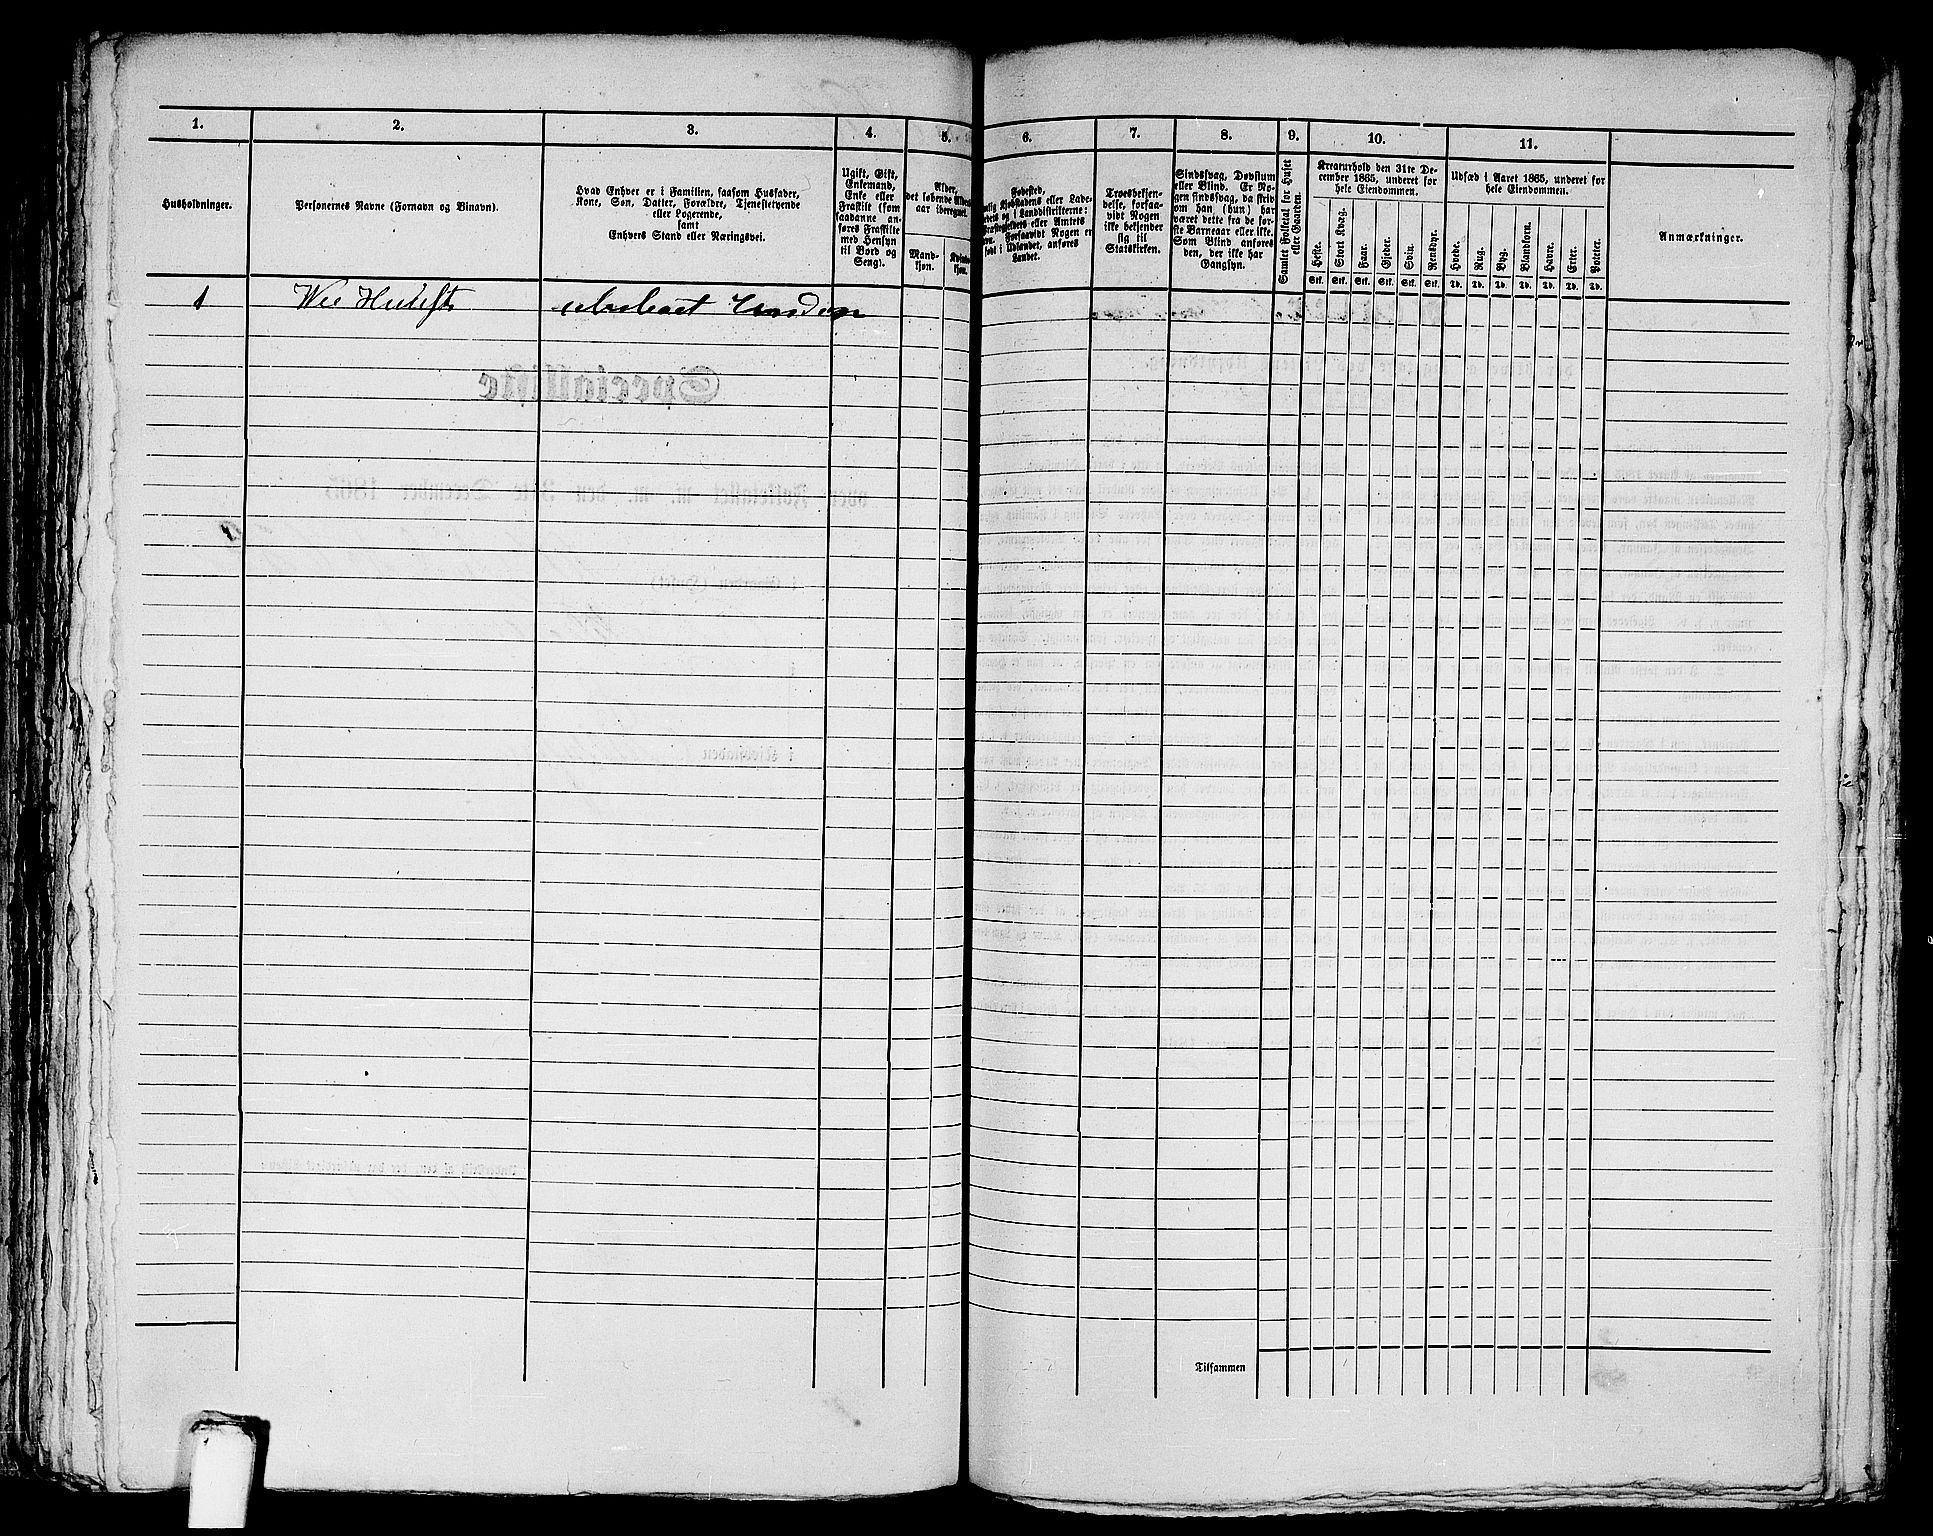 1.
2.
3.
4.
5.
6.
7.
8.
9.
10.
11.
Husholdninger.
Personernes Navne (Fornavn og Binavn).
Hvad Enhver er i Familien, saasom Husfader,
Kone, Søn, Datter, Forældre, Tjenestetyende
eller Logerende,
samt
Enhvers Stand eller Næringsvei.
Ugift, Gift,
Enkemand,
Enke eller
Fraskilt (som
saadanne an-
føres Fraskilte
med Hensyn
til Bord og
Seng).
Alder,
det løbende Alders-
aar iberegnet.
Mand-
kjøn.
Kvinde-
kjøn.
Fødested,
Kjøbstadens eller Lade-
og i Landdistrikterne:
eller Amtets
Forsaavidt Nogen er
i Udlandet, anføres
Landet.
Troesbekjen-
delse, forsaa-
vidt Nogen
ikke bekjender
sig til
Statskirken.
Sindssvag, Døvstum
eller Blind. Er No-
gen sindssvag, da skriv
om han (hun) har
været dette fra de før-
ste Barneaar eller ikke.
Som Blind anføres
den, der ikke har
Gangsyn.
Samlet Folketal for Huset
eller Gaarden.
Kreaturhold den 31te De-
cember 1865, underet for
hele Eiendommen.
Heste.
Stort Kvæg.
Faar.
Gjeder.
Svin.
Rensdyr.
Stk.
Stk.
Stk.
Stk.
Stk.
Stk.
Udsæd i Aaret 1865, underet for
hele Eiendommen.
Hvede.
Rug.
Byg.
Blandkorn.
Havre.
Erter.
Poteter.
Td.
Td.
Td.
Td.
Td.
Td.
Td.
Anmærkninger.
1
Tilsammen